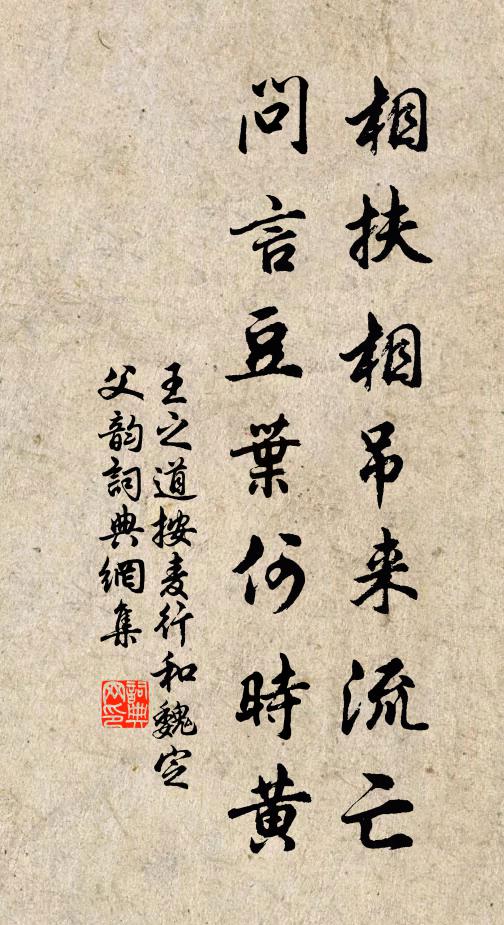 相扶相吊来流亡
問言豆葉何時黄
王之道按麦行和魏定
父韵詞典網集
詞典网印